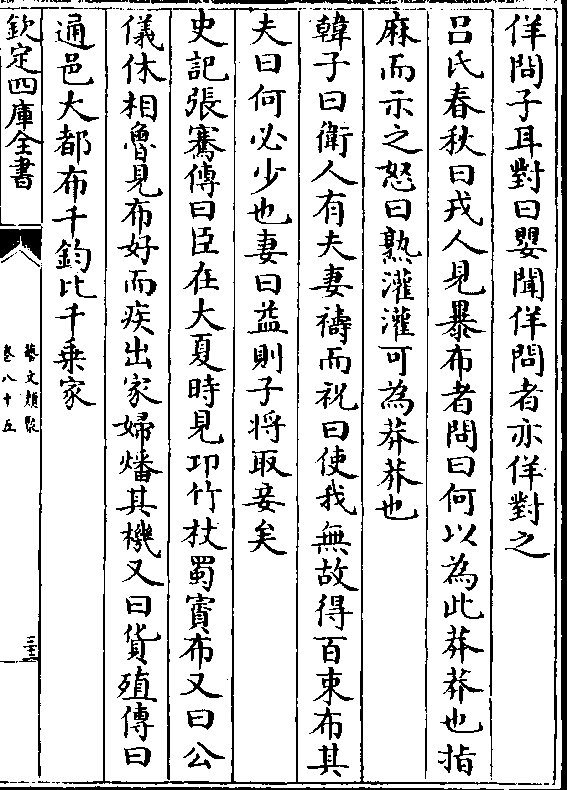 佯問子耳對曰嬰聞佯問者亦佯對之
呂氏春秋曰戎人見暴布者問曰何以為此莽莽也指
麻而示之怒曰孰灌灌可為莽莽也
韓子曰衛人有夫妻禱而祝曰使我無故得百束布其
夫曰何必少也妻曰益則子將取妾矣
史記張騫傳曰臣在大夏時見卭竹杖蜀賨布又曰公
儀休相魯見布好而疾出家婦燔其機又曰貨殖傳曰
通邑大都布千鈞比千乗家
欽定四庫全書
藝文類聚
卷八十五
三十三